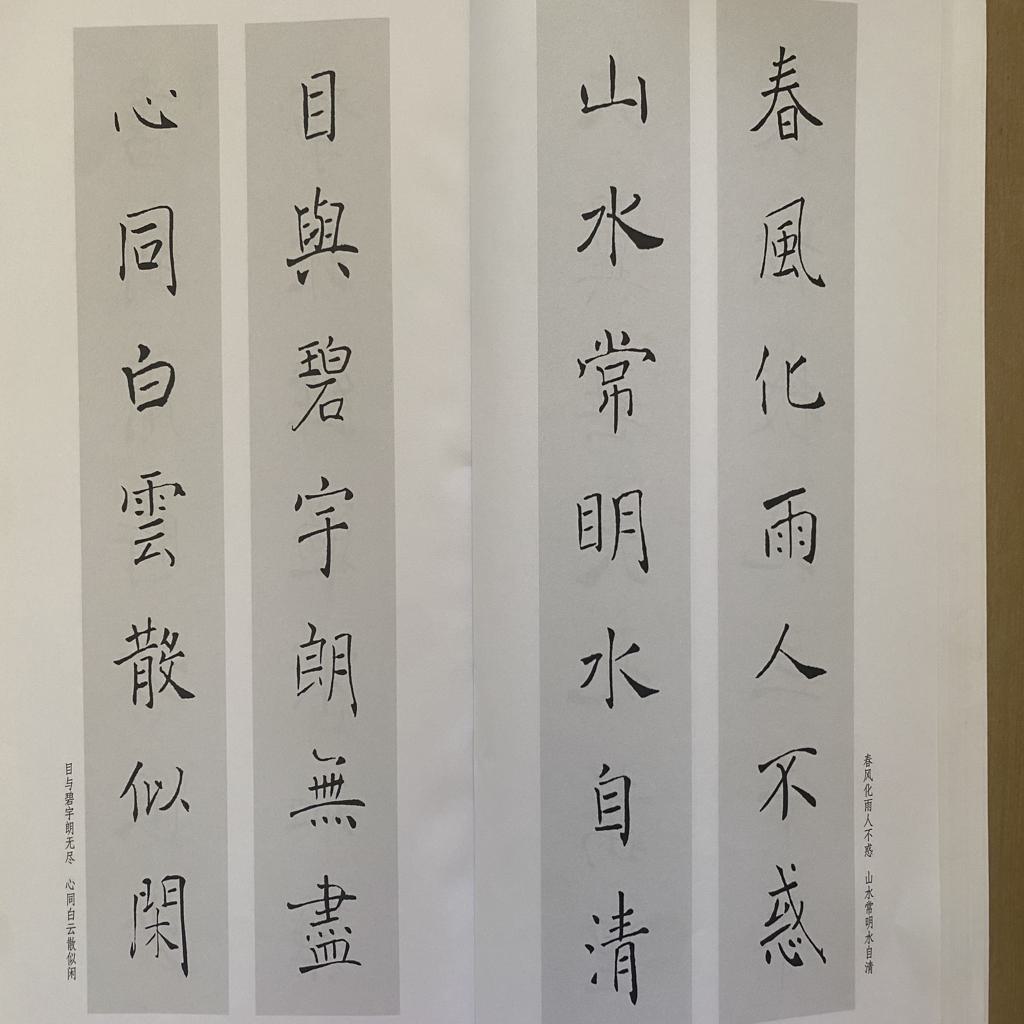 春風化雨人不惑
山水常明水自清
春风化雨人不惑 山水常明水自清
目與碧宇朗無盡
心同白雲散似閑
目与碧宇朗无尽 心同白云散似闲